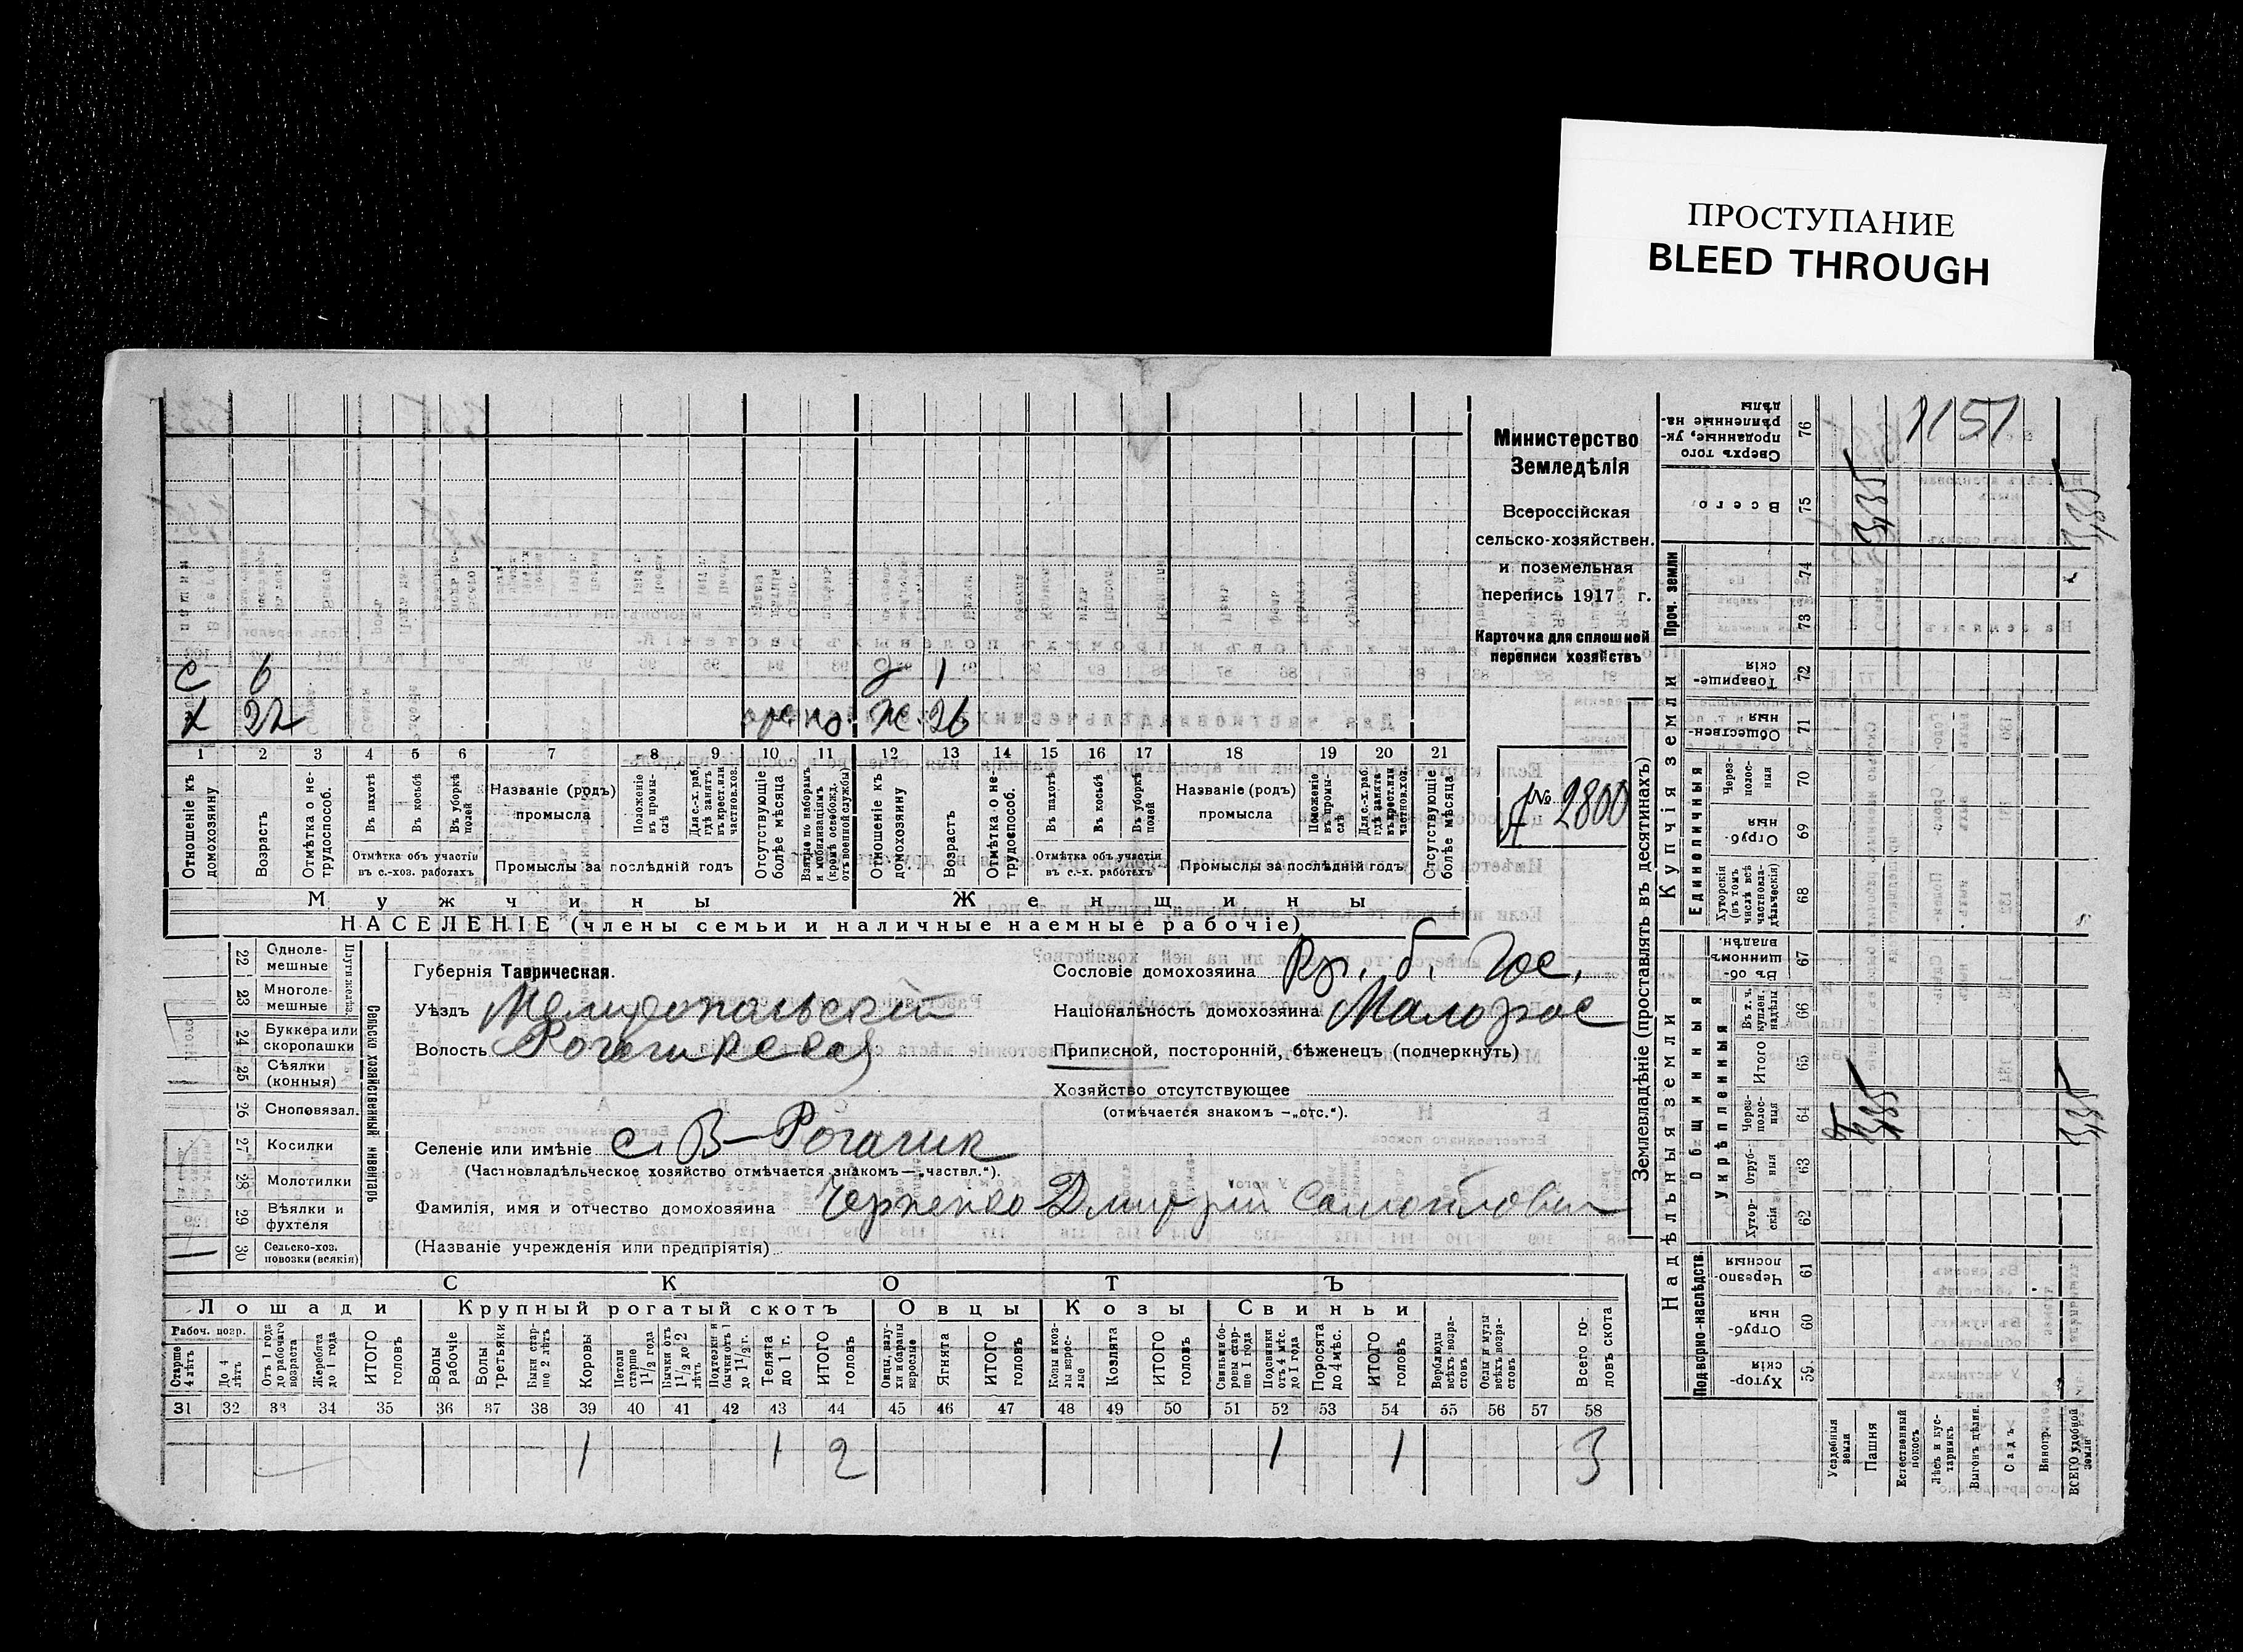 ПРОСТУПАНИЕ
BLEED THROUGH
1151
Министерство
Земледѣлія
Всероссійская
сельско-хозяйствен.
и поземельная
перепись 1917 г.
Карточка для сплошной
переписи хозяйствъ
№ 2800
с 6 д 1
х 22 ж. 26
1 2 3 4 5 6 7 8 9 10 11 12 13 14 15 16 17 18 19 20 21
Отношеніе къ домохозяину
Возрастъ
Отмѣтка о не-трудоспособ.
Въ пахотѣ
Въ косьбѣ
Въ уборкѣ полей
Отмѣтка объ участіи въ с.-хоз. работахъ
Названіе (родъ) промысла
Положеніе въ промы-слѣ
Для с.-х. раб. гдѣ занятъ въ крест. или частнов. хоз.
Промыслы за послѣдній годъ
Отсутствующіе болѣе мѣсяца
Взятые по наборамъ и мобилизаціямъ (кромѣ освобожд. отъ военной службы)
Отношеніе къ домохозяину
Возрастъ
Отмѣтка о не-трудоспособ.
Въ пахотѣ
Въ косьбѣ
Въ уборкѣ полей
Отмѣтка объ участіи въ с.-х. работахъ
Названіе (родъ) промысла
Положеніе въ промы-слѣ
Для с.-х. раб. гдѣ занята въ крест. или частнов. хоз.
Промыслы за послѣдній годъ
Отсутствующіе болѣе мѣсяца
Мужчины Женщины
НАСЕЛЕНІЕ (члены семьи и наличные наемные рабочіе)
Сельско хозяйственный инвентарь
Плуги желѣз.
22 Одноле-мешные
23 Многоле-мешные
24 Буккера или скоропашки
25 Сѣялки (конныя)
26 Сноповязал.
27 Косилки
28 Молотилки
29 Вѣялки и фухтеля
30 Сельско-хоз. повозки (всякія)
Губернія Таврическая.
Уѣздъ Мелитопольскій
Волость Рогачикская
Селеніе или имѣніе с. В-Рогачик
(Частновладѣльческое хозяйство отмѣчается знакомъ — „частвл.“).
Фамилія, имя и отчество домохозяина Черненко Дмитрий Самойлович
(Названіе учрежденія или предпріятія)
Сословіе домохозяина Кр. б. Гос.
Національность домохозяина Малорос
Приписной, посторонній, бѣженецъ (подчеркнуть)
Хозяйство отсутствующее
(отмѣчается знакомъ — „отс.“).
СКОТЪ
Лошади Крупный рогатый скотъ Овцы Козы Свиньи
Рабоч. возр.
Старше 4 лѣтъ
До 4 лѣтъ
Отъ 1 года до рабочаго возраста
Жеребята до 1 года
ИТОГО головъ
Волы рабочіе
Волы третьяки
Быки стар-ше 2 лѣтъ
Коровы
Нетели старше 1 1/2 года
Бычки отъ 1 1/2 до 2 лѣтъ
Подтелки и бычки отъ 1 до 1 1/2 г.
Телята до 1 г.
ИТОГО головъ
Овцы, валу-хи и бараны взрослые
Ягнята
ИТОГО головъ
Козы и коз-лы взрос-лые
Козлята
ИТОГО головъ
Свиньи и бо-ровы стар-ше 1 года
Подсвинки отъ 4 мѣс. до 1 года
Поросята до 4 мѣс.
ИТОГО головъ
Верблюды всѣхъ возра-стовъ
Ослы и мулы всѣхъ возра-стовъ
Всего го-ловъ скота
31 32 33 34 35 36 37 38 39 40 41 42 43 44 45 46 47 48 49 50 51 52 53 54 55 56 57 58
1 1 2 1 1 3
Землевладѣніе (проставлять въ десятинахъ)
Надѣльныя земли
Купчія земли
Проч. земли
Подворно-наслѣдств.
Общинныя
Укрѣпленныя
Единоличныя
Сверхъ того проданные, ук-рѣпленные на-дѣлы 76
Всего 75
74
73
Товарище-скія 72
Обществен-ныя 71
Через-полос-ныя 70
Отруб-ныя 69
Хуторскія (въ томъ числѣ всѣ частновла-дѣльческія) 68
Въ об-щинномъ владѣн. 67
Въ т. ч. куплен. надѣлы 66
Итого 65
Через-полос-ныя 64
Отруб-ныя 63
Хутор-скія 62
Черезпо-лосныя 61
Отруб-ныя 60
Хутор-скія 59
Усадебныя земли
Пашня
Естественный покосъ
Лѣсъ и кус-тарникъ
Выгонъ, цѣлин.
Садъ
Виногр.
ВСЕГО удобной земли